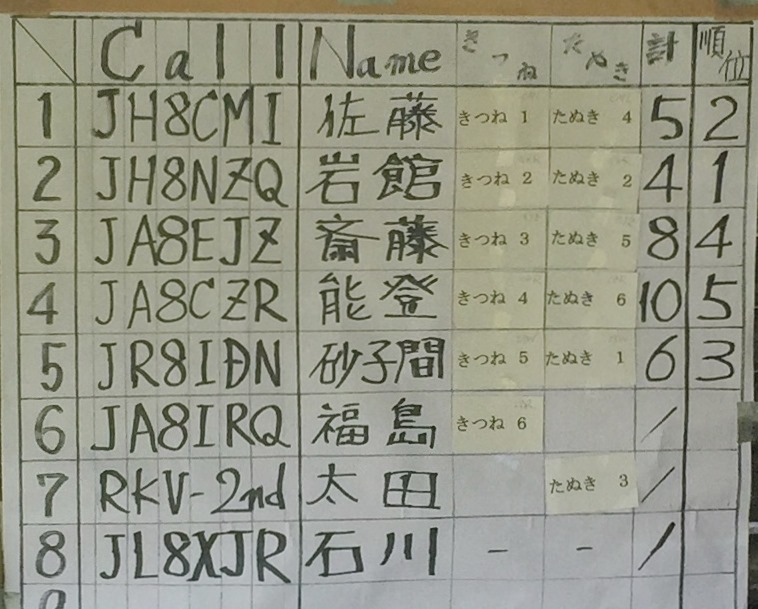 Call Name きつね たぬき 計 順位
1 JH8CMI 佐藤 きつね 1 たぬき 4 5 2
2 JH8NZQ 岩館 きつね 2 たぬき 2 4 1
3 JA8EJZ 斎藤 きつね 3 たぬき 5 8 4
4 JA8CZR 能登 きつね 4 たぬき 6 10 5
5 JR8IDN 砂子間 きつね 5 たぬき 1 6 3
6 JA8IRQ 福島 きつね 6 /
7 RKV-2nd 太田 たぬき 3 /
8 JL8XJR 石川 - - /